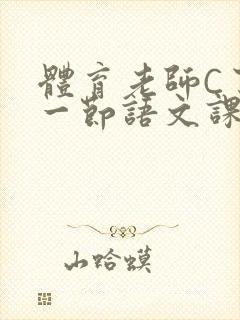 體育老師C了
一節語文課
山哈蟆